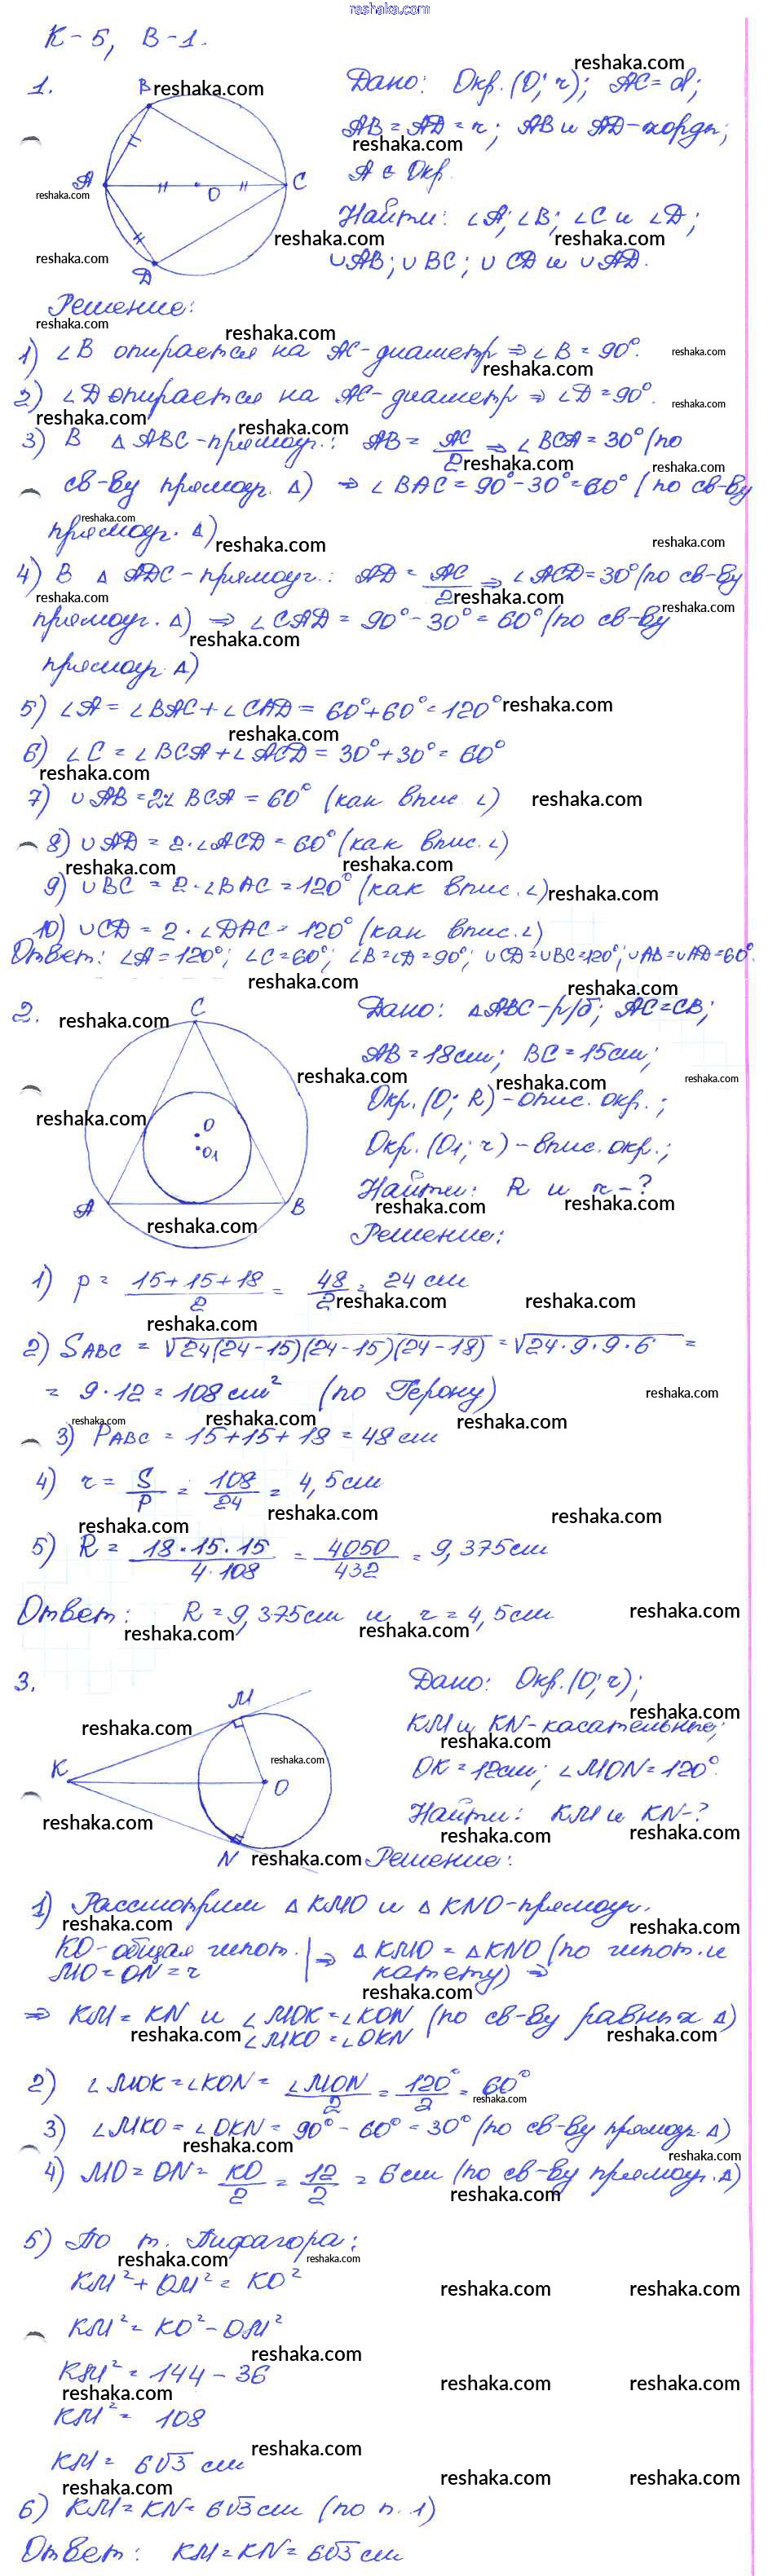 reshaka.com
К-5, В-1.
1. B Дано: Окр. (O; r); AC = d;
AB = AD = r; AB и AD - хорды;
A ∈ Окр.
A O C
Найти: ∠A; ∠B; ∠C и ∠D;
∪AB; ∪BC; ∪CD и ∪AD.
D
Решение:
1) ∠B опирается на AC - диаметр ⇒ ∠B = 90°.
2) ∠D опирается на AC - диаметр ⇒ ∠D = 90°.
3) В △ABC - прямоуг.: AB = AC/2 ⇒ ∠BCA = 30° (по
св-ву прямоуг. △) ⇒ ∠BAC = 90° - 30° = 60° (по св-ву
прямоуг. △)
4) В △ADC - прямоуг.: AD = AC/2 ⇒ ∠ACD = 30° (по св-ву
прямоуг. △) ⇒ ∠CAD = 90° - 30° = 60° (по св-ву
прямоуг. △)
5) ∠A = ∠BAC + ∠CAD = 60° + 60° = 120°
6) ∠C = ∠BCA + ∠ACD = 30° + 30° = 60°
7) ∪AB = 2·∠BCA = 60° (как впис. ∠)
8) ∪AD = 2·∠ACD = 60° (как впис. ∠)
9) ∪BC = 2·∠BAC = 120° (как впис. ∠)
10) ∪CD = 2·∠DAC = 120° (как впис. ∠)
Ответ: ∠A = 120°; ∠C = 60°; ∠B = ∠D = 90°; ∪CD = ∪BC = 120°; ∪AB = ∪AD = 60°.
2. C Дано: △ABC - р/б; AC = CB;
AB = 18 см; BC = 15 см;
Окр. (O; R) - опис. окр.;
O
O1
Окр. (O1; r) - впис. окр.;
Найти: R и r - ?
A B
Решение:
1) p = (15 + 15 + 18)/2 = 48/2 = 24 см
2) SABC = √24(24-15)(24-15)(24-18) = √24·9·9·6 =
= 9·12 = 108 см² (по Герону)
3) PABC = 15 + 15 + 18 = 48 см
4) r = S/p = 108/24 = 4,5 см
5) R = (18·15·15)/(4·108) = 4050/432 = 9,375 см
Ответ: R = 9,375 см и r = 4,5 см
3. Дано: Окр. (O; r);
M
KM и KN - касательные;
K O
OK = 12 см; ∠MON = 120°.
Найти: KM и KN - ?
N Решение:
1) Рассмотрим △KMO и △KNO - прямоуг.
KO - общая гипот.
MO = ON = r
⇒ △KMO = △KNO (по гипот. и
катету) ⇒
⇒ KM = KN и ∠MOK = ∠KON (по св-ву равных △)
∠MKO = ∠OKN
2) ∠MOK = ∠KON = ∠MON/2 = 120°/2 = 60°
3) ∠MKO = ∠OKN = 90° - 60° = 30° (по св-ву прямоуг. △)
4) MO = ON = KO/2 = 12/2 = 6 см (по св-ву прямоуг. △)
5) По т. Пифагора:
KM² + OM² = KO²
KM² = KO² - OM²
KM² = 144 - 36
KM² = 108
KM = 6√3 см
6) KM = KN = 6√3 см (по п. 1)
Ответ: KM = KN = 6√3 см